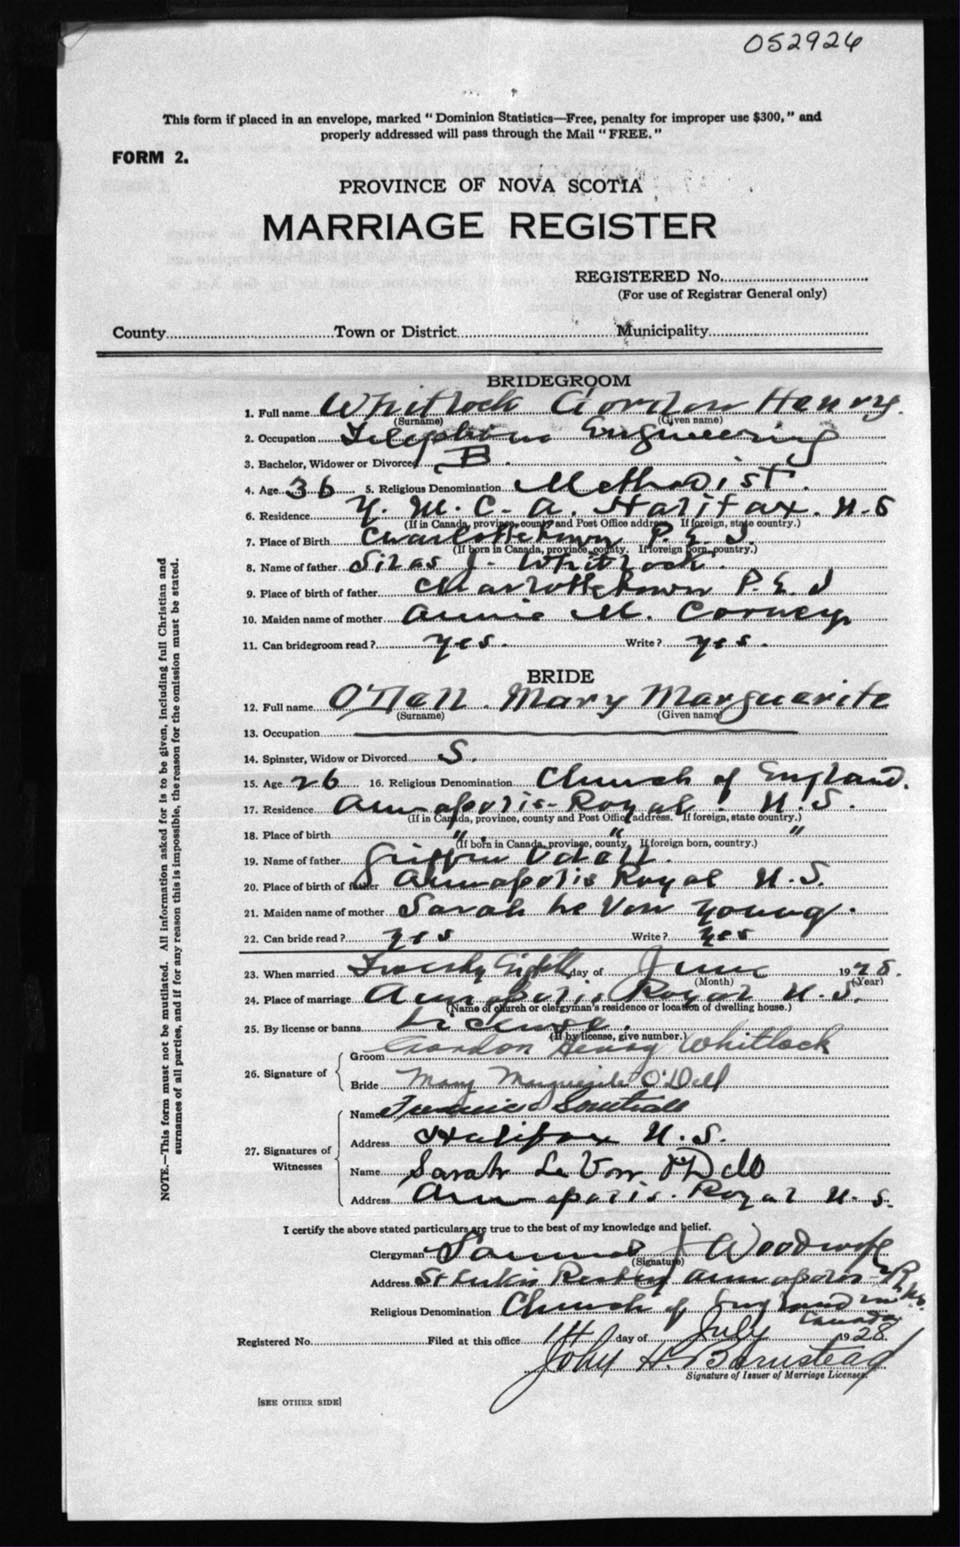 052926
This form if placed in an envelope, marked "Dominion Statistics—Free, penalty for improper use $300," and
properly addressed will pass through the Mail "FREE."
FORM 2.
PROVINCE OF NOVA SCOTIA
MARRIAGE REGISTER
REGISTERED No.
(For use of Registrar General only)
County Town or District Municipality
BRIDEGROOM
1. Full name Whitlock Gordon Henry.
(Surname) (Given name)
2. Occupation Telephone Engineering
3. Bachelor, Widower or Divorced B.
4. Age 36 5. Religious Denomination Methodist.
6. Residence Y. M. C. A. Halifax. N. S
(If in Canada, province, county and Post Office address. If foreign, state country.)
7. Place of Birth Charlottetown P. E. I.
(If born in Canada, province, county. If foreign born, country.)
8. Name of father Silas J. Whitlock.
9. Place of birth of father Charlottetown P. E. I
10. Maiden name of mother Annie M. Corney
11. Can bridegroom read? yes. Write? yes.
BRIDE
12. Full name O'Dell. Mary Marguerite
(Surname) (Given name)
13. Occupation
14. Spinster, Widow or Divorced S.
15. Age 26 16. Religious Denomination Church of England.
17. Residence Annapolis-Royal. N. S.
(If in Canada, province, county and Post Office address. If foreign, state country.)
18. Place of birth " " "
(If born in Canada, province, county. If foreign born, country.)
19. Name of father Griffin Odell.
20. Place of birth of father Annapolis Royal N. S.
21. Maiden name of mother Sarah Le Von Young.
22. Can bride read? yes Write? yes
23. When married Twenty Eighth day of June 1928.
(Month) (Year)
24. Place of marriage Annapolis Royal N. S.
(Name of church or clergyman's residence or location of dwelling house.)
25. By license or banns License.
(If by license, give number.)
26. Signature of
Groom Gordon Henry Whitlock
Bride Mary Marguerite O'Dell
27. Signatures of Witnesses
Name
Address Halifax N. S.
Name Sarah Le Von O'Dell
Address Annapolis. Royal N. S.
I certify the above stated particulars are true to the best of my knowledge and belief.
Clergyman Samuel J Woodroofe
(Signature)
Address St Luke's Rectory Annapolis-R N.S.
Religious Denomination Church of England in Canada
Registered No. Filed at this office 14 day of July 1928
John H. Barnstead
Signature of Issuer of Marriage Licenses.
[SEE OTHER SIDE]
NOTE.—This form must not be mutilated. All information asked for is to be given, including full Christian and
surnames of all parties, and if for any reason this is impossible, the reason for the omission must be stated.